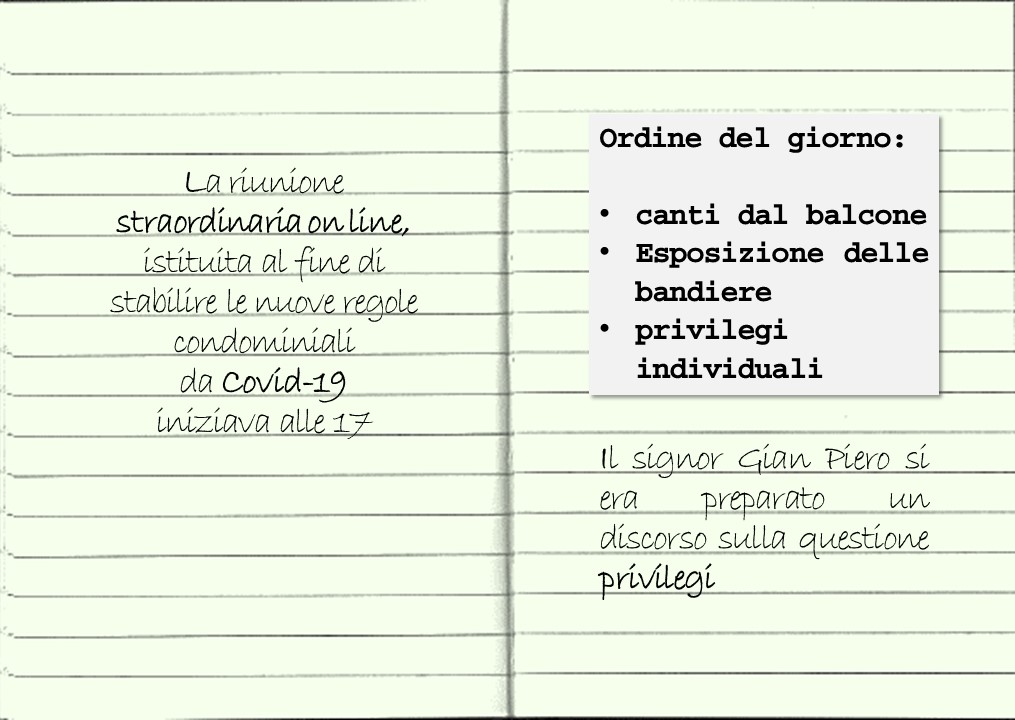 La riunione
straordinaria on line,
istituita al fine di
stabilire le nuove regole
condominiali
da Covid-19
iniziava alle 17
Ordine del giorno:
• canti dal balcone
• Esposizione delle
bandiere
• privilegi
individuali
Il signor Gian Piero si
era preparato un
discorso sulla questione
privilegi